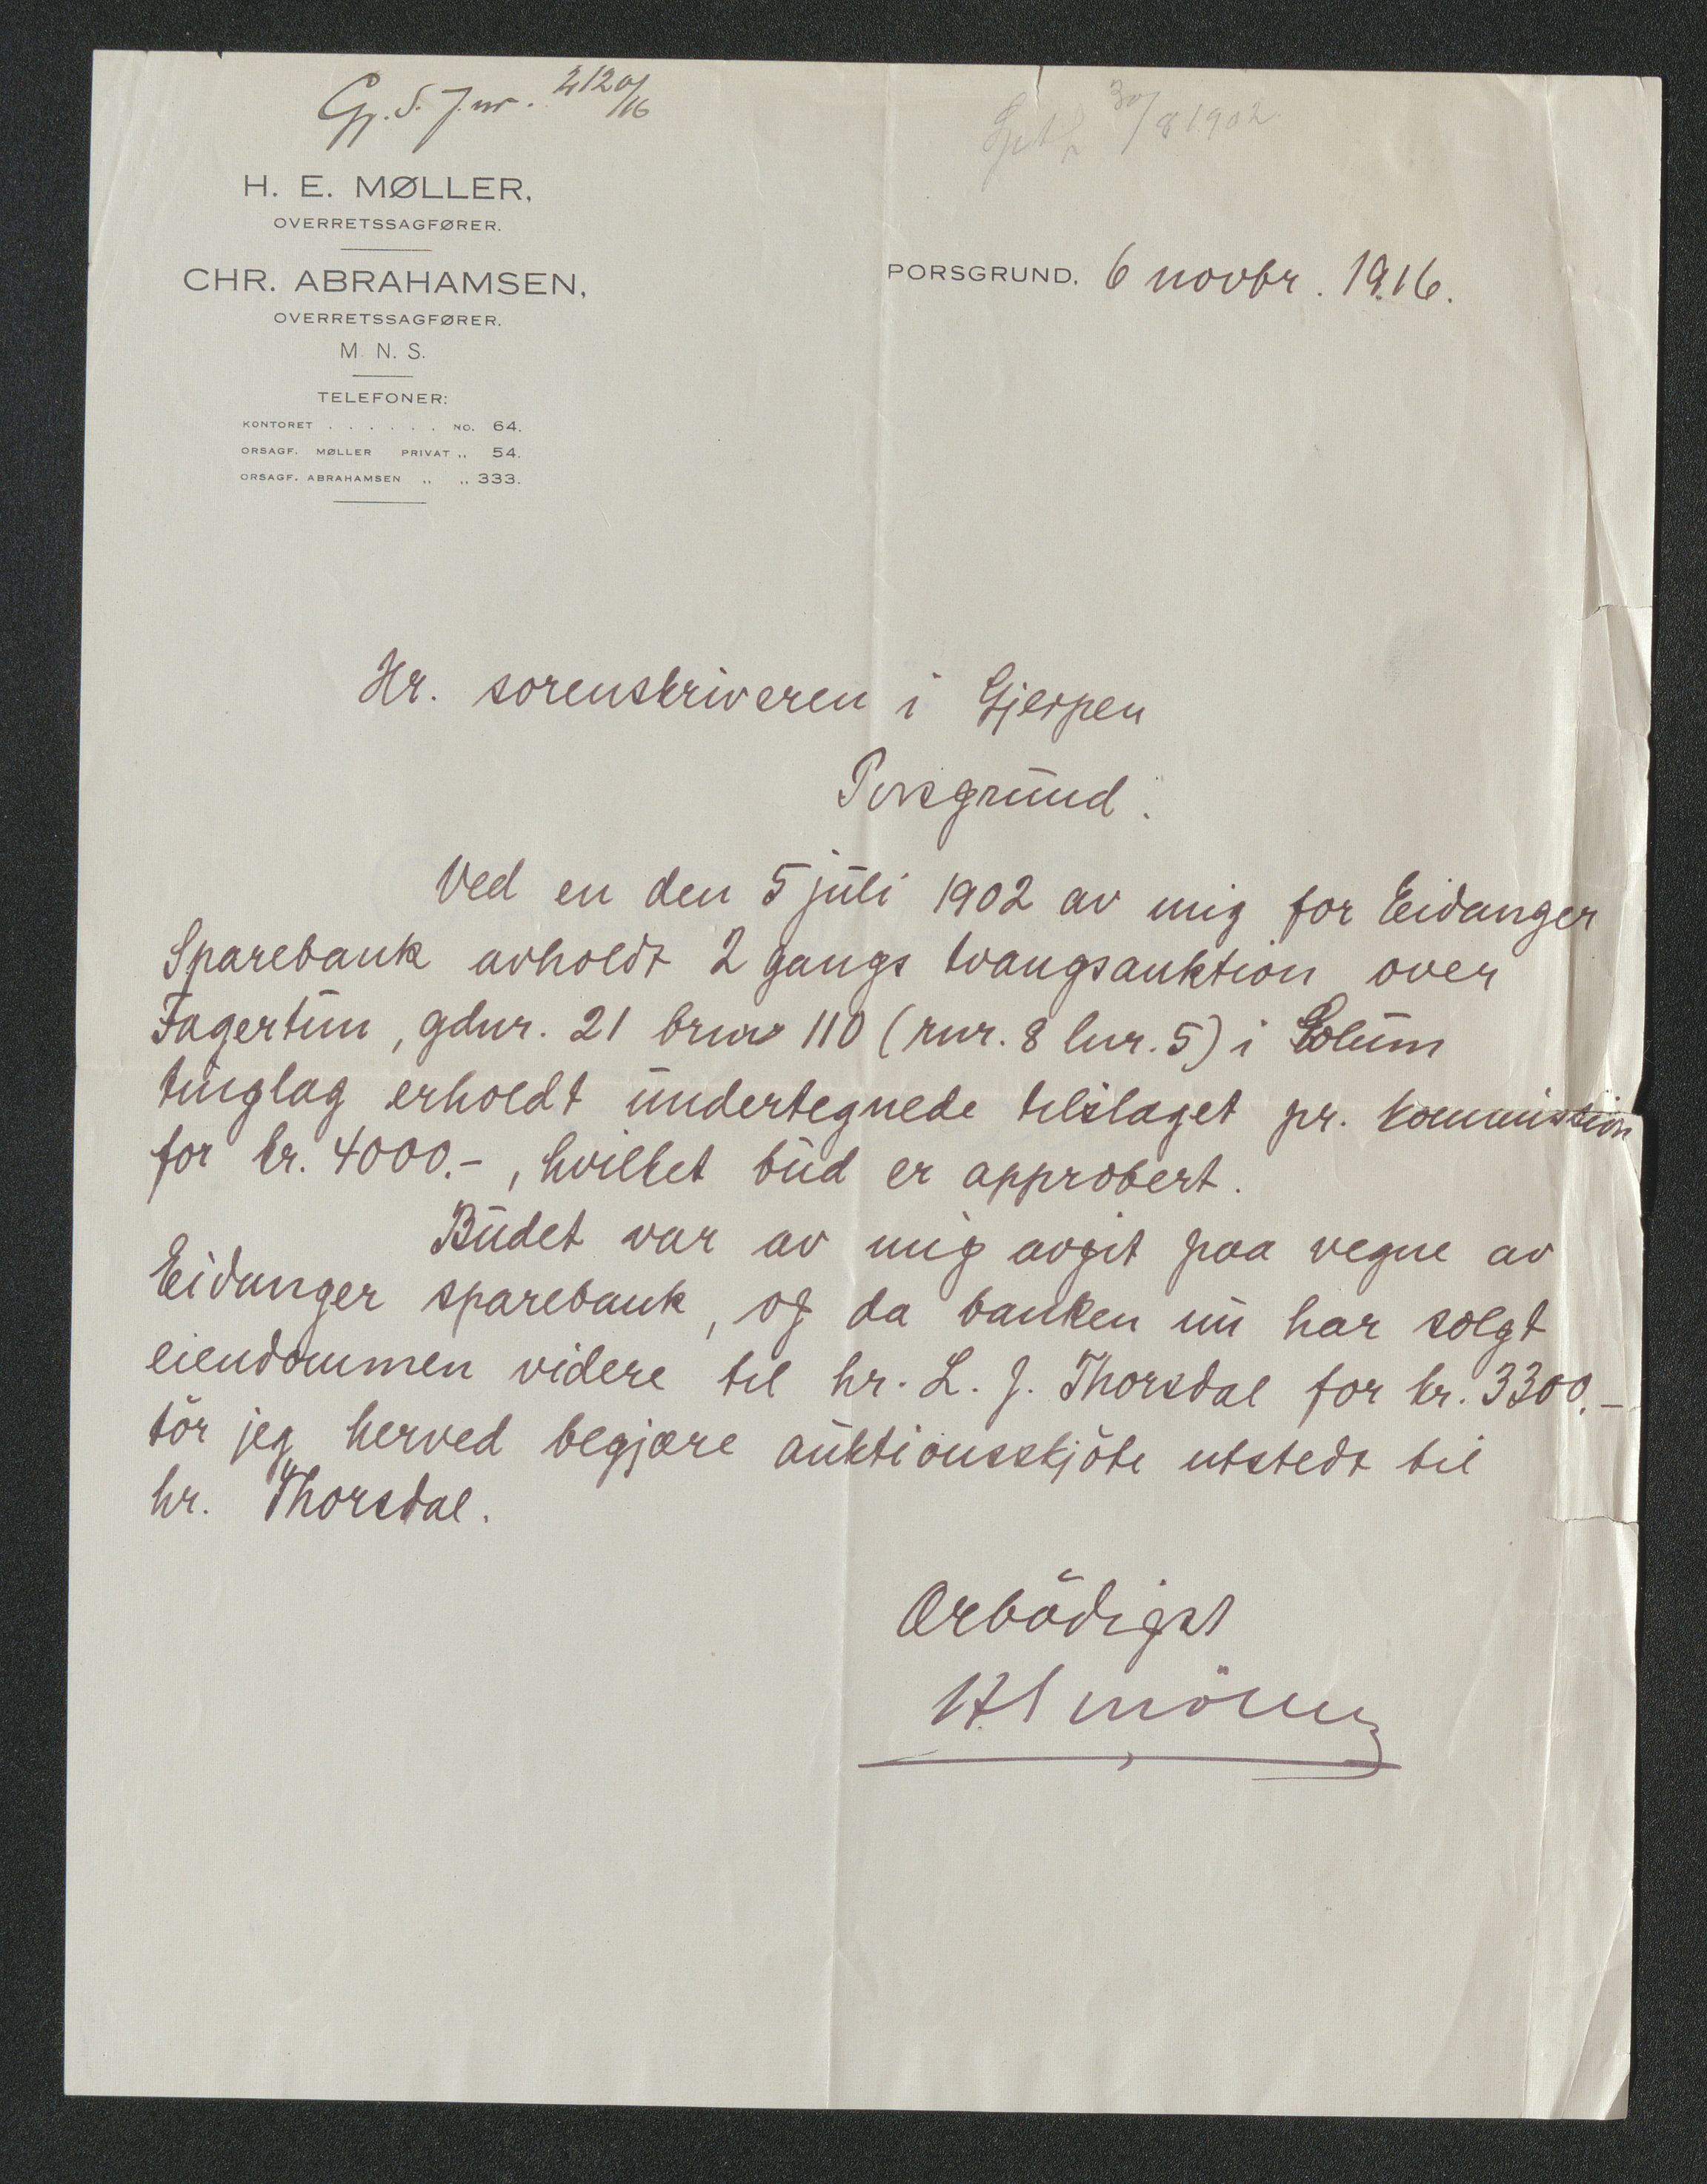 Gp. S. J.nr. 2120/16
30/8 1902
H. E. MØLLER,
OVERRETSSAGFØRER.
CHR. ABRAHAMSEN,
OVERRETSSAGFØRER.
M. N. S.
TELEFONER:
KONTORET . . . . . . NO. 64.
ORSAGF. MØLLER PRIVAT „ 54.
ORSAGF. ABRAHAMSEN „ „ 333.
PORSGRUND, 6 novbr. 1916.
Hr. sorenskriveren i Gjerpen
Porsgrund.
Ved en den 5 juli 1902 av mig for Eidanger
Sparebank avholdt 2 gangs tvangsauktion over
Fagertun, gdnr. 21 brnr 110 (rnr. 8 lnr. 5) i Solum
tinglag erholdt undertegnede tilslaget pr. kommission
for kr. 4000.-, hvilket bud er approbert.
Budet var av mig avgit paa vegne av
Eidanger sparebank, og da banken nu har solgt
eiendommen videre til hr. L. J. Thorsdal for kr. 3300.-
tör jeg herved begjære auktionsskjöte utstedt til
hr. Thorsdal.
Ærbödigst
HE Möller